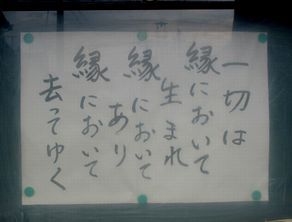 一切は
縁において
生まれ
縁において
あり
縁において
去ってゆく